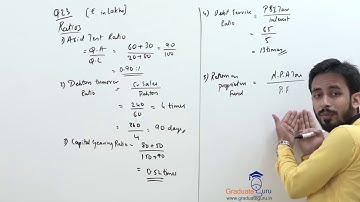 Q.23 (₹ in Lakhs)
Ratios
1) Acid Test Ratio
= Q.A / Q.L = 60+30 / 20+80 = 90 / 100
= 0.90:1
2) Debtors turnover Ratio = Cr. Sales / Debtors
= 240 / 60 = 4 times
= 360 / 4 = 90 days
3) Capital Gearing Ratio = 80+50 / 150+90
= 0.54 times
4) Debt Service Ratio = PBITax / interest
= 65 / 5
= 13 times
5) Return on proprietors fund = N.P.A Tax / P.F
Graduate Guru
www.graduateguru.in